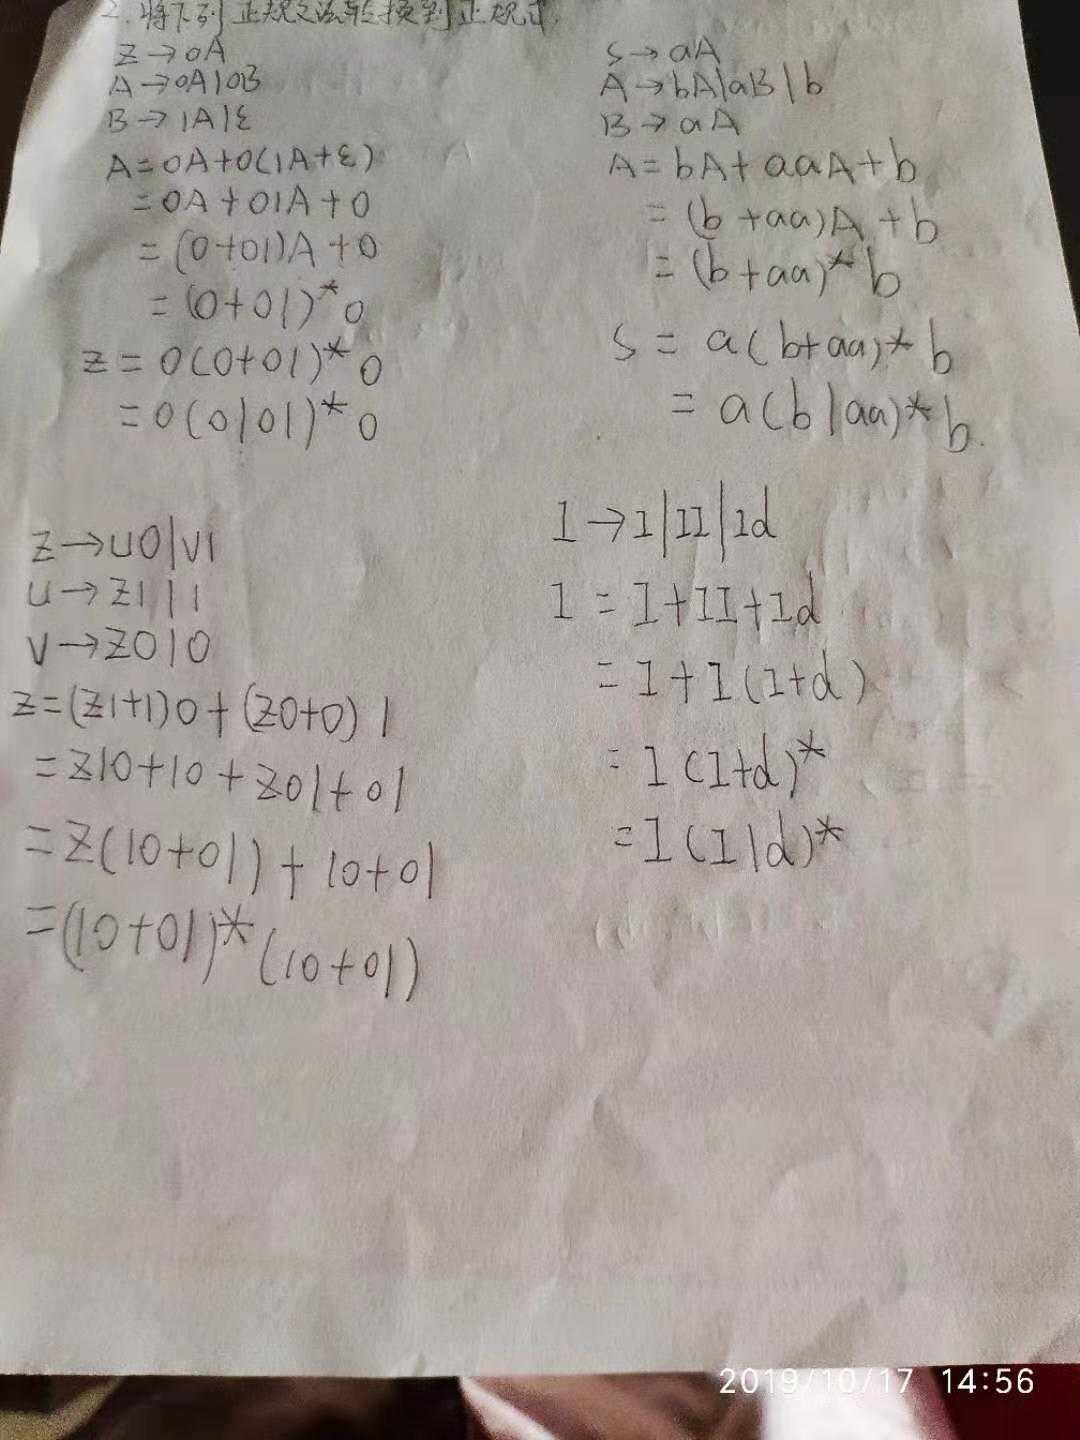 2. 将下列正规文法转换到正规式
Z→0A
A→0A|0B
B→1A|ε
A=0A+0(1A+ε)
=0A+01A+0
=(0+01)A+0
=(0+01)*0
Z=0(0+01)*0
=0(0|01)*0
S→aA
A→bA|aB|b
B→aA
A=bA+aaA+b
=(b+aa)A+b
=(b+aa)*b
S=a(b+aa)*b
=a(b|aa)*b.
Z→U0|V1
U→Z1|1
V→Z0|0
Z=(Z1+1)0+(Z0+0)1
=Z10+10+Z01+01
=Z(10+01)+10+01
=(10+01)*(10+01)
I→I|II|Id
I=I+II+Id
=I+I(I+d)
=I(I+d)*
=I(I|d)*
2019/10/17 14:56